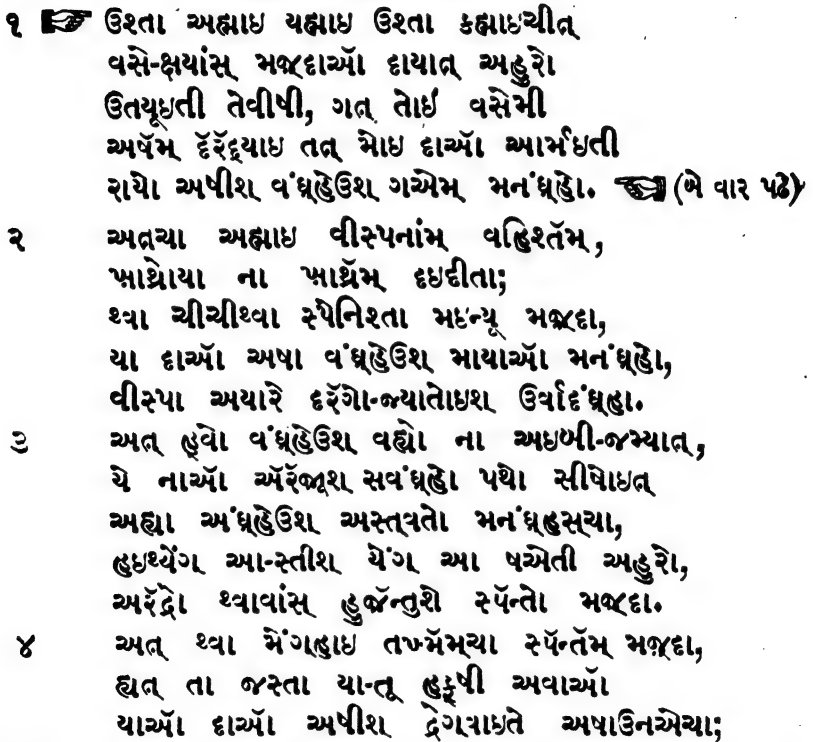 ૧ ☞ ઉશ્તા અહ્માઇ યહ્માઇ ઉશ્તા કહ્માઇચીત્
વસે-ક્ષયાંસ્ મજ઼્દાઑ દાયાત્ અહુરો
ઉતયૂઇતી તેવીષી, ગત્ તોઇ વસેમી
અષૅમ્ દૅરૅદ્રયાઇ તત્ મોઇ દાઑ આર્મઇતી
રાયો અષીશ વંઘ્હેઉશ ગએમ્ મનંઘ્હો. ☜ (બે વાર પઢે)
૨ અત્ચા અહ્માઇ વીસ્પનાંમ્ વહિશ્તૅમ્,
ખાથ્રોયા ના ખાથ્રૅમ્ દઇદીતા;
થ્વા ચીચીથ્વા સ્પેનિશ્તા મઇન્યૂ મજ઼્દા,
યા દાઑ અષા વંઘ્હેઉશ માયાઑ મનંઘ્હો,
વીસ્પા અયારે દરૅગો-જ્યાતોઇશ ઉર્વાદંઘ્હા.
૩ અત્ હ્વો વંઘ્હેઉશ વહ્યો ના અઇબી-જમ્યાત્,
યે નાઑ ઍરૅજ઼ૂશ સવંઘ્હો પથો સીષોઇત્
અહ્યા અંઘ્હેઉશ અસ્ત્વતો મનંઘ્હસ્ચા,
હઇથ્યેંગ આ-સ્તીશ યેંગ આ ષએતી અહુરો,
અરૅદ્રો થ્વાવાંસ્ હુજ઼ૅન્તુશે સ્પૅન્તો મજ઼્દા.
૪ અત્ થ્વા મેંગ્હાઇ તખ્મૅમ્ચા સ્પૅન્તૅમ્ મજ઼્દા,
હ્યત્ તા જ઼સ્તા યા-તૂ હફ્ષી અવાઑ
યાઑ દાઑ અષીશ દ્રેગ્વાઇતે અષાઉનએચા;